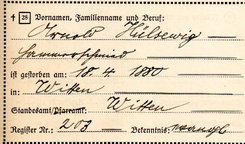 † 28 Vornamen, Familienname und Beruf:
Arnold Hülsewig
Hammerschmied
ist gestorben am 18. 4. 1880
in Witten
Standesamt/Pfarramt: Witten
Register Nr. 203 Bekenntnis: evangl